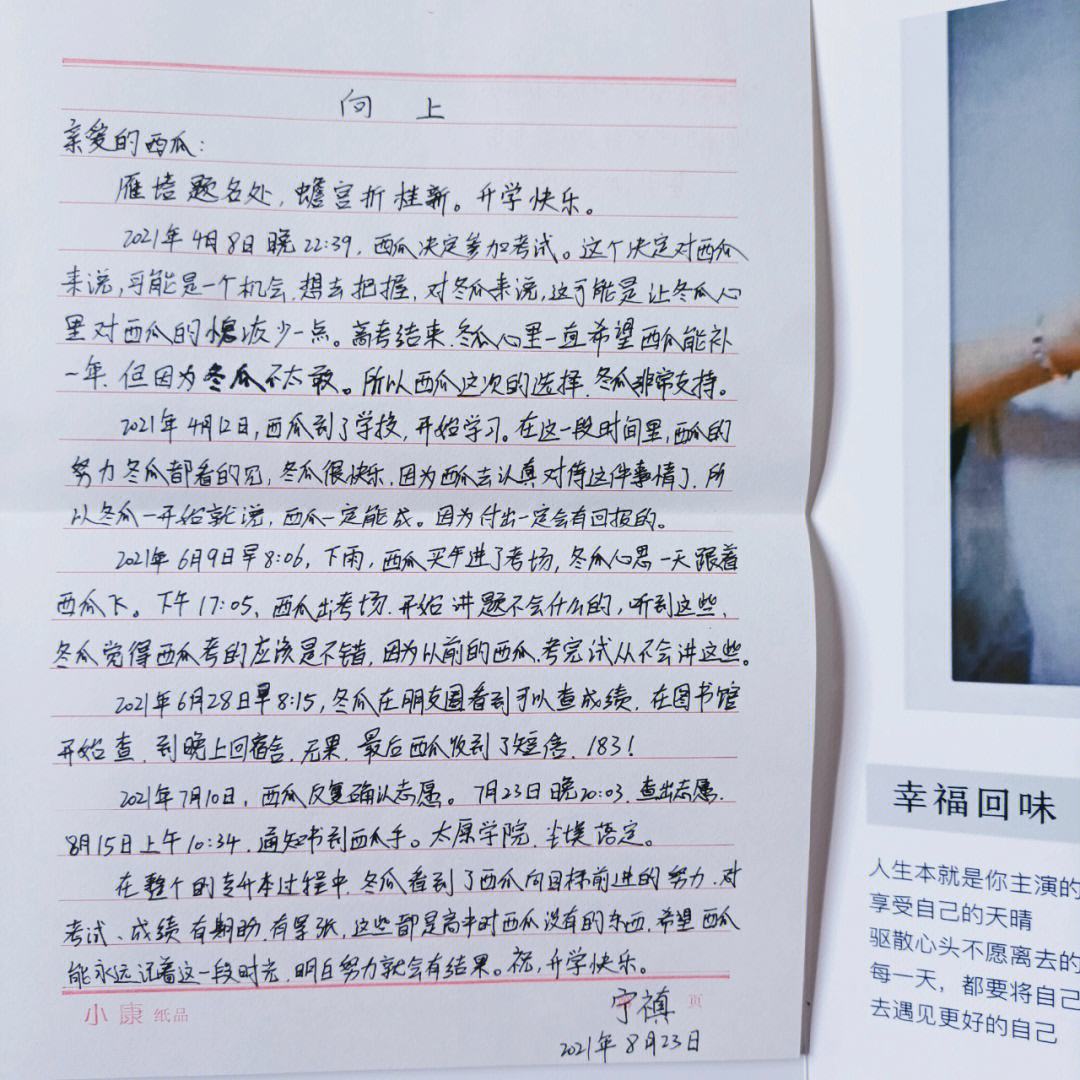 向 上
亲爱的西瓜:
雁塔题名处,蟾宫折桂新。开学快乐。
2021年4月8日晚22:39,西瓜决定参加考试。这个决定对西瓜
来说,可能是一个机会,想去把握,对冬瓜来说,这可能是让冬瓜心
里对西瓜的愧疚少一点。高考结束,冬瓜心里一直希望西瓜能补
一年,但因为冬瓜不太敢。所以西瓜这次的选择,冬瓜非常支持。
2021年4月12日,西瓜到了学校,开始学习。在这一段时间里,西瓜的
努力冬瓜都看的见,冬瓜很快乐,因为西瓜去认真对待这件事情了,所
以冬瓜一开始就说,西瓜一定能成。因为付出一定会有回报的。
2021年6月9日早8:06,下雨,西瓜买伞进了考场,冬瓜心思一天跟着
西瓜下。下午17:05、西瓜出考场,开始讲题不会什么的,听到这些,
冬瓜觉得西瓜考的应该是不错,因为以前的西瓜,考完试从不会讲这些。
2021年6月28日早8:15,冬瓜在朋友圈看到可以查成绩,在图书馆
开始查,到晚上回宿舍,无果,最后西瓜收到了短信,183!
2021年7月10日,西瓜反复确认志愿。7月23日晚20:03,查出志愿,
8月15日上午10:34,通知书到西瓜手。太原学院,尘埃落定。
在整个的专升本过程中,冬瓜看到了西瓜向目标前进的努力,对
考试、成绩有期盼,有紧张,这些都是高中时西瓜没有的东西,希望西瓜
能永远记着这一段时光,明白努力就会有结果。祝,开学快乐。
小康 纸品
页
宁禛
2021年8月23日
幸福回味
人生本就是你主演的
享受自己的天晴
驱散心头不愿离去的
每一天,都要将自己
去遇见更好的自己